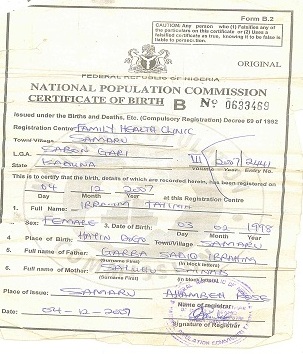 Form B.2
CAUTION: Any person who (1) falsifies any of the particulars on this certificate or (2) Uses a falsified certificate as true, knowing it to be false is liable to persecution.
ORIGINAL
FEDERAL REPUBLIC OF NIGERIA
NATIONAL POPULATION COMMISSION
CERTIFICATE OF BIRTH B No 0633469
Issued under the Births and Deaths, Etc. (Compulsory Registration) Decree 69 of 1992
Registration Centre: FAMILY HEALTH CLINIC
Town/Village SAMARU
L.G.A. SABON GARI VII 2007 2441
State KADUNA Volume Year Entry No.
This is to certify that the birth, details of which are recorded herein, has been registered on
04 12 2007 at this Registration Centre
Day Month Year
1. Full Name: IBRAHIM
2. Sex: FEMALE 3. Date of Birth: 03 02 1998
Day Month Year
4 Place of Birth: HAYIN DOGO Town/Village SAMARU
5. Full Name of Father: GARBA SADIQ IBRAHIM
(Surname First) (in block letters)
6. Full Name of Mother:
(Surname First) (in block letters)
Place of Issue: SAMARU
Name of registrar
Date: 04-12-2007
Signature of Registrar